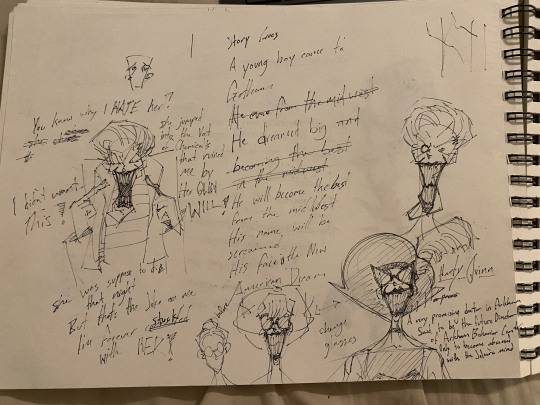 You know why I HATE her?
She jumped
into the Vat
Chemicals
that ruined
me by
Her OWN
WILL!
I didn't want
This!
She was suppose to die
that night
But that's the Joke on me
I'm Forever stuck
with
HER!
Story Goes
A young boy came to
Gotham
He came from the mid west
He dreamed big and
becoming the best
in the midwest
He will become the best
from the mid West
His name, will be
screamed
His Favorite New
American Dream
change
glasses
Harley Quinn
A very promising doctor in Arkham
Said to be the future Director
of Arkham Behavior
only to become obsessed
with the
mind